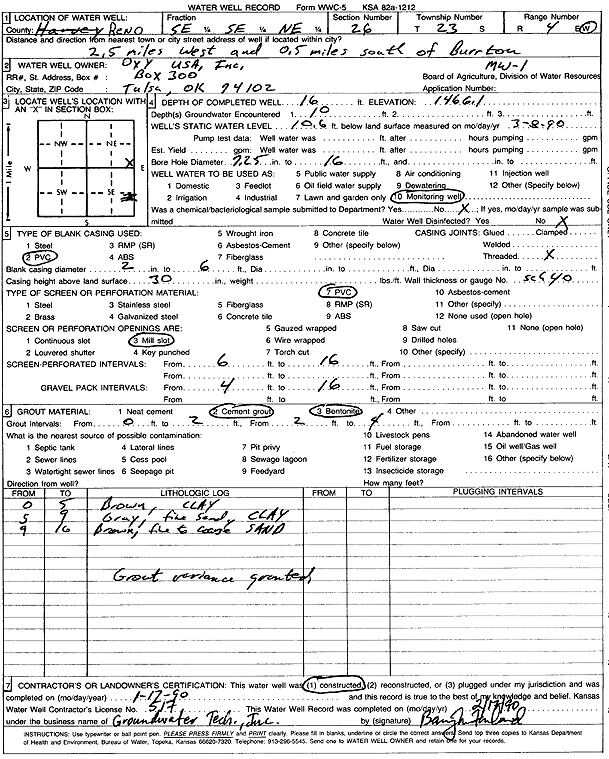 WATER WELL RECORD Form WWC-5 KSA 82a-1212
1 LOCATION OF WATER WELL: Fraction Section Number Township Number Range Number
County: Harvey Reno SE ¼ SE ¼ NE ¼ 26 T 23 S R 4 E/W
Distance and direction from nearest town or city street address of well if located within city?
2,5 miles west and 0,5 miles south of Burrton
2 WATER WELL OWNER: Oxy USA, Inc. MW-1
RR#, St. Address, Box # : Box 300 Board of Agriculture, Division of Water Resources
City, State, ZIP Code : Tulsa, OK 74102 Application Number:
3 LOCATE WELL'S LOCATION WITH AN "X" IN SECTION BOX:
N
NW NE
W X E
SW SE
S
1 Mile
4 DEPTH OF COMPLETED WELL 16 ft. ELEVATION: 1466.1
Depth(s) Groundwater Encountered 1. 10 ft. 2. ft. 3. ft.
WELL'S STATIC WATER LEVEL 10.6 ft. below land surface measured on mo/day/yr 3-8-90
Pump test data: Well water was ft. after hours pumping gpm
Est. Yield gpm: Well water was ft. after hours pumping gpm
Bore Hole Diameter 7.25 in. to 16 ft., and in. to ft.
WELL WATER TO BE USED AS: 5 Public water supply 8 Air conditioning 11 Injection well
1 Domestic 3 Feedlot 6 Oil field water supply 9 Dewatering 12 Other (Specify below)
2 Irrigation 4 Industrial 7 Lawn and garden only 10 Monitoring well
Was a chemical/bacteriological sample submitted to Department? Yes No X; If yes, mo/day/yr sample was submitted
Water Well Disinfected? Yes No X
5 TYPE OF BLANK CASING USED: 5 Wrought iron 8 Concrete tile CASING JOINTS: Glued Clamped
1 Steel 3 RMP (SR) 6 Asbestos-Cement 9 Other (specify below) Welded
2 PVC 4 ABS 7 Fiberglass Threaded X
Blank casing diameter 2 in. to 6 ft., Dia in. to ft., Dia in. to ft.
Casing height above land surface 30 in., weight lbs./ft. Wall thickness or gauge No. sch 40
TYPE OF SCREEN OR PERFORATION MATERIAL: 7 PVC 10 Asbestos-cement
1 Steel 3 Stainless steel 5 Fiberglass 8 RMP (SR) 11 Other (specify)
2 Brass 4 Galvanized steel 6 Concrete tile 9 ABS 12 None used (open hole)
SCREEN OR PERFORATION OPENINGS ARE: 5 Gauzed wrapped 8 Saw cut 11 None (open hole)
1 Continuous slot 3 Mill slot 6 Wire wrapped 9 Drilled holes
2 Louvered shutter 4 Key punched 7 Torch cut 10 Other (specify)
SCREEN-PERFORATED INTERVALS: From 6 ft. to 16 ft., From ft. to ft.
From ft. to ft., From ft. to ft.
GRAVEL PACK INTERVALS: From 4 ft. to 16 ft., From ft. to ft.
From ft. to ft., From ft. to ft.
6 GROUT MATERIAL: 1 Neat cement 2 Cement grout 3 Bentonite 4 Other
Grout Intervals: From 0 ft. to 2 ft., From 2 ft. to 4 ft., From ft. to ft.
What is the nearest source of possible contamination: 10 Livestock pens 14 Abandoned water well
1 Septic tank 4 Lateral lines 7 Pit privy 11 Fuel storage 15 Oil well/Gas well
2 Sewer lines 5 Cess pool 8 Sewage lagoon 12 Fertilizer storage 16 Other (specify below)
3 Watertight sewer lines 6 Seepage pit 9 Feedyard 13 Insecticide storage
Direction from well? How many feet?
FROM TO LITHOLOGIC LOG FROM TO PLUGGING INTERVALS
0 5 Brown, CLAY
5 9 Gray, fine sandy CLAY
9 16 Brown, fine to coarse SAND
Grout variance granted,
7 CONTRACTOR'S OR LANDOWNER'S CERTIFICATION: This water well was (1) constructed, (2) reconstructed, or (3) plugged under my jurisdiction and was
completed on (mo/day/year) 1-17-90 and this record is true to the best of my knowledge and belief. Kansas
Water Well Contractor's License No. 517 This Water Well Record was completed on (mo/day/yr) 2/17/90
under the business name of Groundwater Tech., Inc. by (signature)
INSTRUCTIONS: Use typewriter or ball point pen. PLEASE PRESS FIRMLY and PRINT clearly. Please fill in blanks, underline or circle the correct answers. Send top three copies to Kansas Department
of Health and Environment, Bureau of Water, Topeka, Kansas 66620-7320. Telephone: 913-296-5545. Send one to WATER WELL OWNER and retain one for your records.